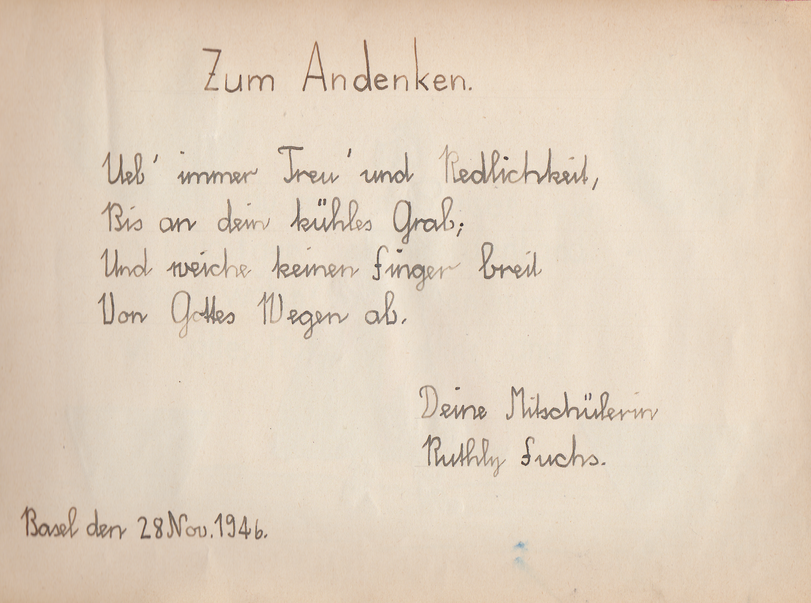 Zum Andenken.
Ueb' immer Treu' und Redlichkeit,
Bis an dein kühles Grab;
Und weiche keinen finger breit
Von Gottes Wegen ab.
Deine Mitschülerin
Ruthly Fuchs.
Basel den 28 Nov. 1946.